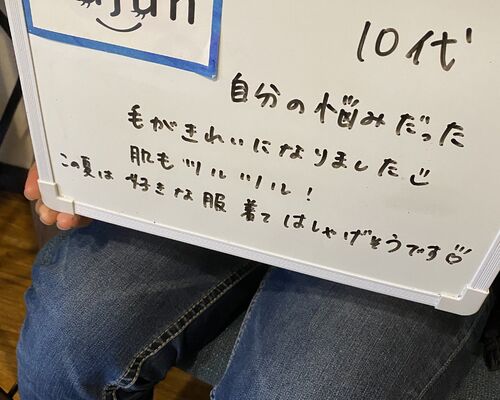 10代
自分の悩みだった
毛がきれいになりました
肌もツルツル!
この夏は好きな服着てはしゃげそうです